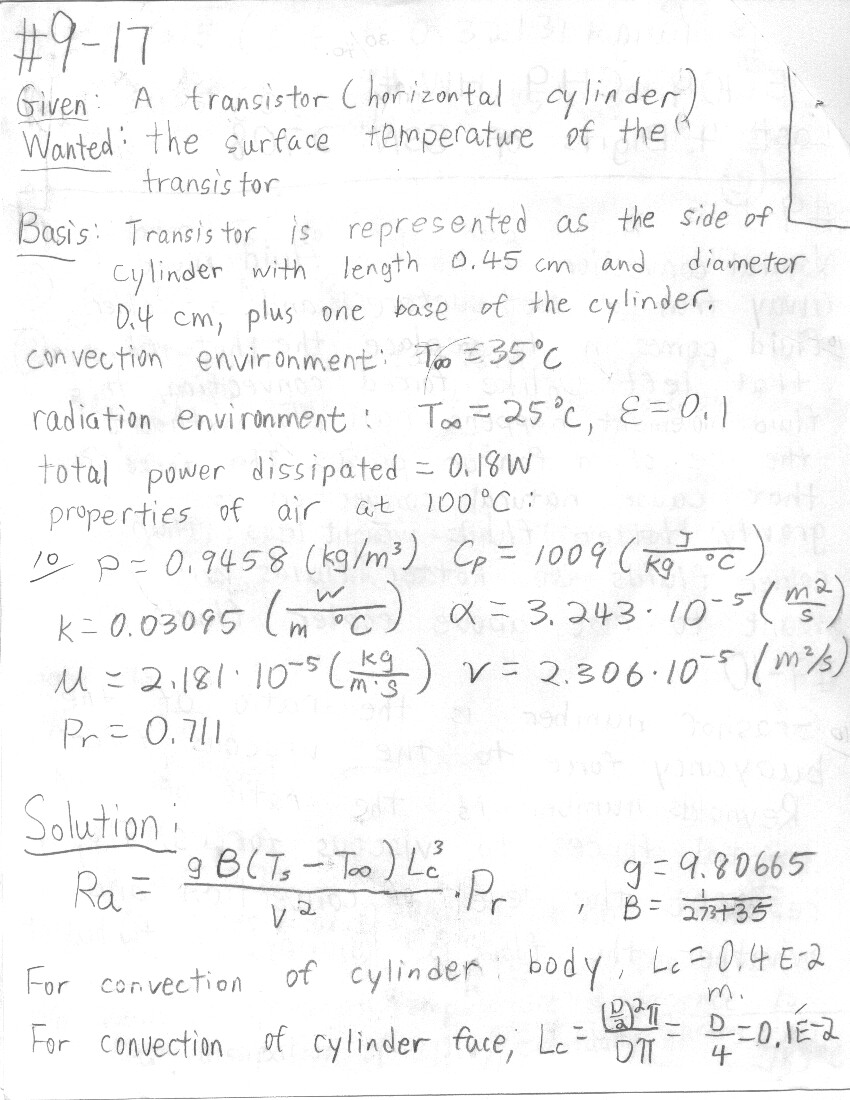 #9-17
Given: A transistor (horizontal cylinder)
Wanted: the surface temperature of the
transistor
Basis: Transistor is represented as the side of
cylinder with length 0.45 cm and diameter
0.4 cm, plus one base of the cylinder.
convection environment: T∞ = 35°C
radiation environment: T∞ = 25°C, ε = 0.1
total power dissipated = 0.18W
properties of air at 100°C:
10/ ρ = 0.9458 (kg/m³) Cp = 1009 (J/kg °C)
k = 0.03095 (W/m °C) α = 3.243·10⁻⁵ (m²/s)
μ = 2.181·10⁻⁵ (kg/m·s) ν = 2.306·10⁻⁵ (m²/s)
Pr = 0.711
Solution:
Ra = g B(Ts - T∞) Lc³ / ν² · Pr , g = 9.80665
B = 1/273+35
For convection of cylinder body, Lc = 0.4 E-2
m.
For convection of cylinder face, Lc = (D/2)²π / Dπ = D/4 = 0.1E-2